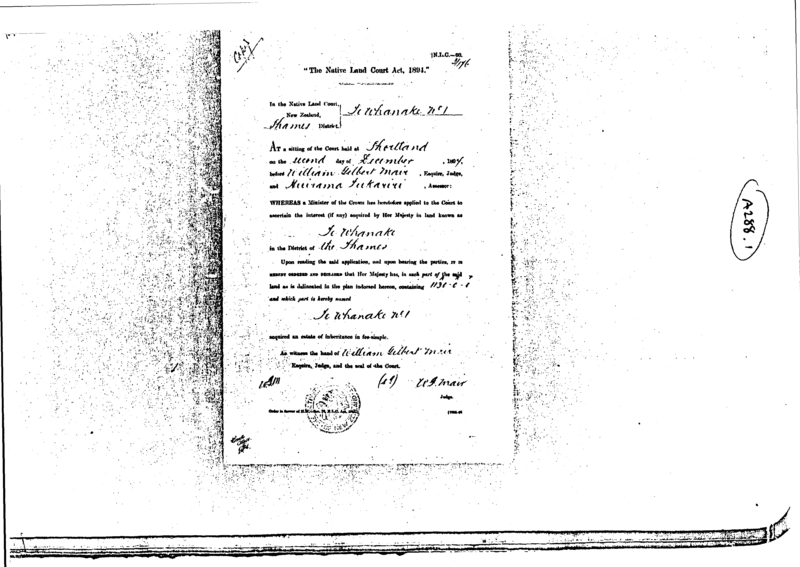 Copy
[N.L.C.—60.
"The Native Land Court Act, 1894."
In the Native Land Court,
New Zealand,
Thames District.
Te Whanake No 1
At a sitting of the Court held at Shortland
on the second day of December, 1897,
before William Gilbert Mair, Esquire, Judge,
and Hurama Tukariri, Assessor:
WHEREAS a Minister of the Crown has heretofore applied to the Court to
ascertain the interest (if any) acquired by Her Majesty in land known as
Te Whanake
in the District of the Thames
Upon reading the said application, and upon hearing the parties, IT IS
HEREBY ORDERED AND DECLARED that Her Majesty has, in such part of the said
land as is delineated in the plan indorsed hereon, containing 1130-0-0
and which part is hereby named
Te Whanake No 1
acquired an estate of inheritance in fee-simple.
As witness the hand of William Gilbert Mair
Esquire, Judge, and the seal of the Court.
W. G. Mair
Judge.
A288.1